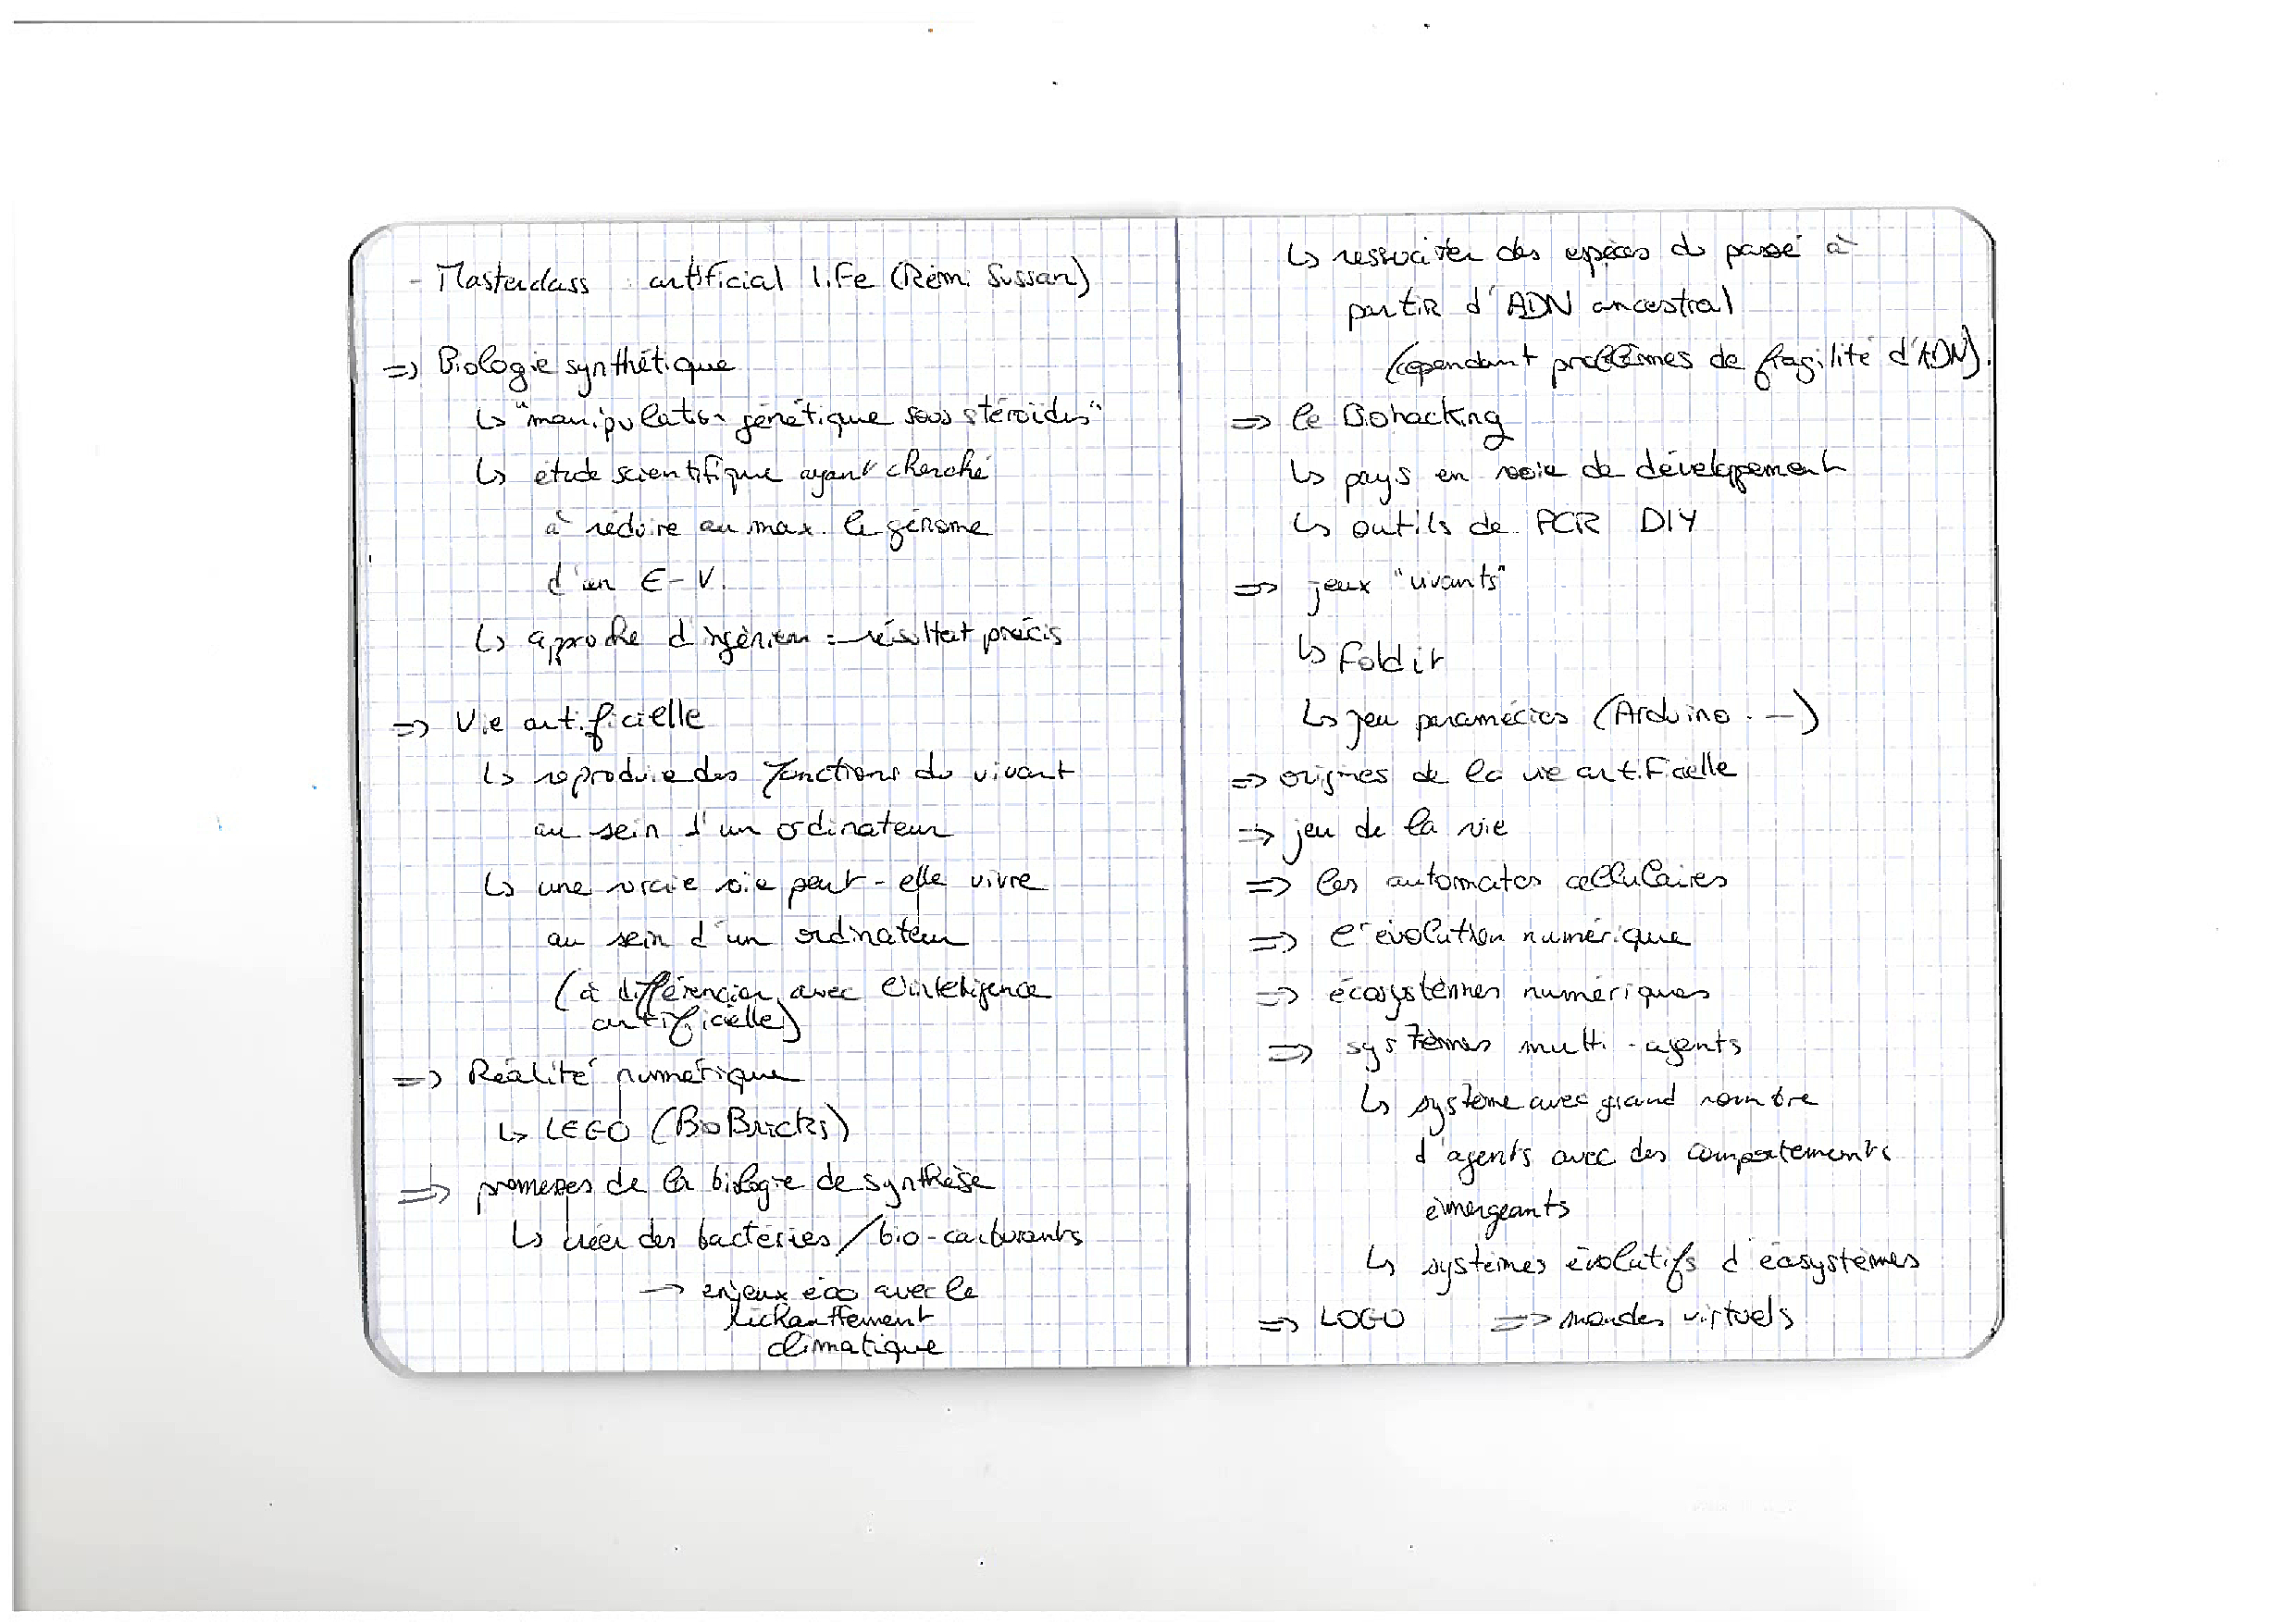 - Masterclass : artificial life (Rémi Sussan)
=> Biologie synthétique
↳ "manipulation génétique sous stéroïdes"
↳ étude scientifique ayant cherché
à réduire au max. le génome
d'un E-V.
↳ approche d'ingénieur = résultat précis
=> Vie artificielle
↳ reproduire des fonctions du vivant
au sein d'un ordinateur
↳ une vraie vie peut-elle vivre
au sein d'un ordinateur
(à différencier avec l'intelligence
artificielle)
=> Réalité numérique
↳ LEGO (BioBricks)
=> promesses de la biologie de synthèse
↳ créer des bactéries / bio-carburants
→ enjeux éco avec le
réchauffement
climatique
↳ ressusciter des espèces du passé à
partir d'ADN ancestral
(cependant problèmes de fragilité d'ADN).
=> le Biohacking
↳ pays en voie de développement
↳ outils de PCR DIY
=> jeux "vivants"
↳ Foldit
↳ jeu paramécies (Arduino...)
=> origines de la vie artificielle
=> jeu de la vie
=> les automates cellulaires
=> l'évolution numérique
=> écosystèmes numériques
=> systèmes multi-agents
↳ système avec grand nombre
d'agents avec des comportements
émergeants
↳ systèmes évolutifs d'écosystèmes
=> LOGO => mondes virtuels